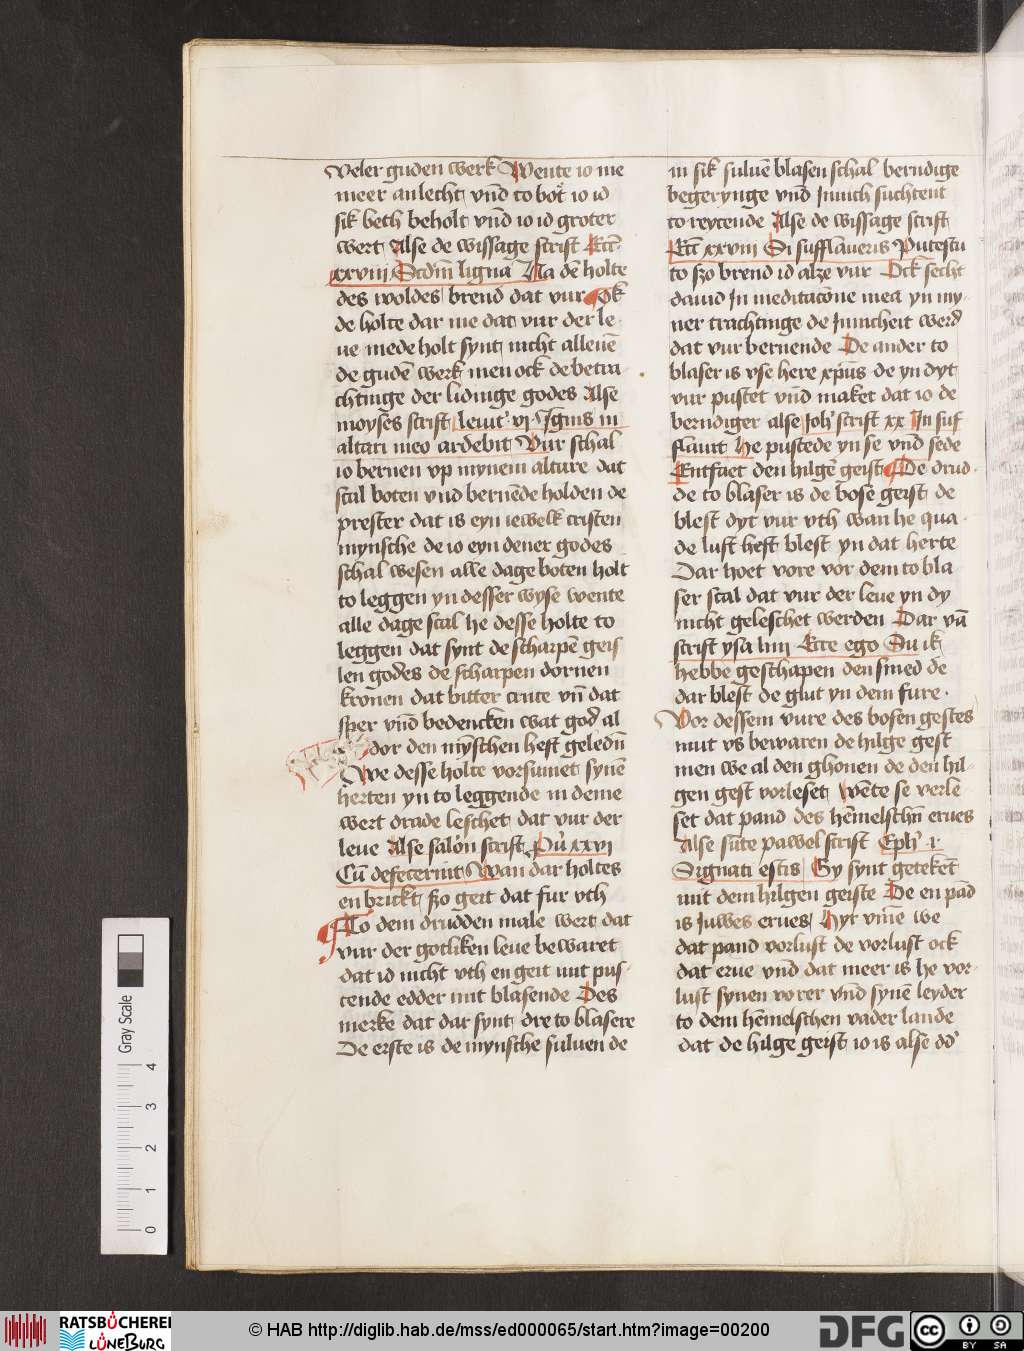 veler guden werk Wente io me
meer an lecht vnd to bot io id
sik beth beholt vnd io id groter
wert Alse de wissage scrift Ecci
xxviii Scdm ligna Na dē holte
des woldes brend dat vur Ok
de holte dar me dat vur der le
ue mede holt synt nicht alleuē
de gudē werk men ock de betra
chtinge der lidinge godes Alse
moyses scrift leuit vi Ignis in
altari meo ardebit Vur schal
io bernen vp mynem altare dat
scal boten vnd bernēde holden de
prester dat is eyn iewelk cristen
mynsche de io eyn dener godes
schal wesen alle dage boten holt
to leggen yn desser wyse wente
alle dage scal he desse holte to
leggen dat synt de scharpē geis
len godes de scharpen dornen
kronen dat bitter cruce vn̄ dat
sper vnd bedencken wat god al
dor den mynschen heft geledn̄
We desse holte vorsumet synē
herten yn to leggende in deme
wert drade leschet dat vur der
leue Alse salon scrift Pu xxvi
Cū defecerint Wan dar holtes
en brickt szo geit dat fur vth
To dem drudden male wert dat
vur der gotliken leue bewaret
dat id nicht vth en geit mit pus
tende edder mit blasende Des
merke dat dar synt dre to blasere
De erste is de mynsche suluen de
in sik suluē blasen schal berndige
begerynge vnd Innich suchtent
to reytende Alse de wissage scrift
Ecci xxviii Si sufflaueris Putestu
to szo brend id alze vur Ock secht
dauid In meditacōne mea yn my
ner trachtinge de Innicheit werd
dat vur bernende De ander to
blaser is vse here xpūs de yn dyt
vur pustet vnd maket dat io de
berndiger alse Joh scrift xx In suf
flauit he pustede yn se vnd sede
Entfaet den hilgē geist De drud
de to blaser is de bose geist de
blest dyt vur vth wan he qua
de lust heft blest yn dat herte
Dar hoet vore vor dem to bla
ser scal dat vur der leue yn dy
nicht geleschet werden Dar vā
scrift ysa liiii Ecce ego Su ik
hebbe geschapen den smed de
dar blest de glut yn dem fure
Vor dessem vure des bosen gestes
mut vs bewaren de hilge gest
men we al den ghonen de den hil
gen gest vorleset wēte se verle
set dat pand des hēmelschn̄ erues
Alse sūte pawel scrift Eph i
Signati estis Gy synt geteket
mit dem hilgen geiste De en pād
is Juwes erues Hyr vme we
dat pand vorlust de vorlust ock
dat erue vnd dat meer is he vor
lust synen vorer vnd synē leyder
to dem hēmelschen vader lande
dat de hilge geist io is alse dd
Gray Scale
0 1 2 3 4
RATSBÜCHEREI
LÜNEBURG
© HAB http://diglib.hab.de/mss/ed000065/start.htm?image=00200
DFG
cc
BY SA